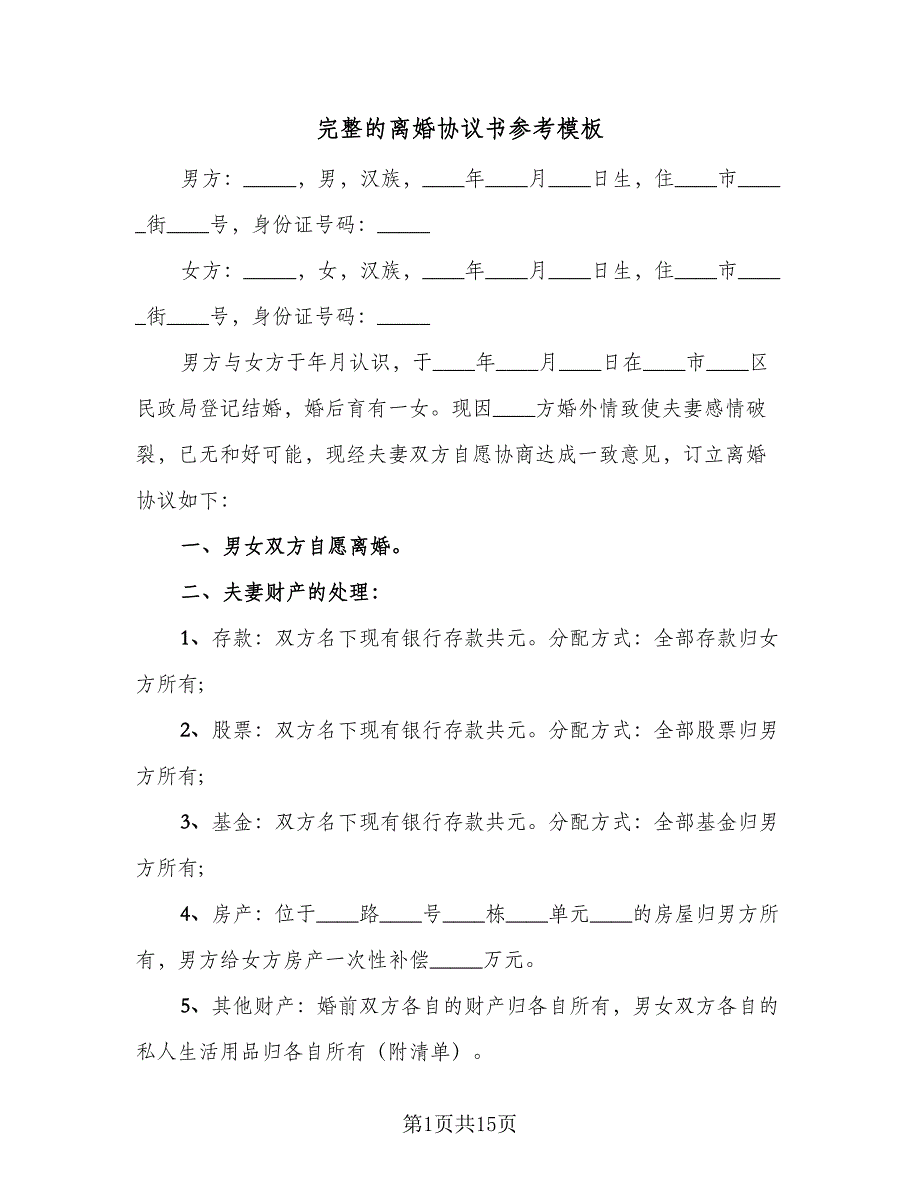 完整的离婚协议书参考模板
男方：_____，男，汉族，____年____月____日生，住____市____
_街____号，身份证号码：_____
女方：_____，女，汉族，____年____月____日生，住____市____
_街____号，身份证号码：_____
男方与女方于年月认识，于____年____月____日在____市____区
民政局登记结婚，婚后育有一女。现因____方婚外情致使夫妻感情破
裂，已无和好可能，现经夫妻双方自愿协商达成一致意见，订立离婚
协议如下：
一、男女双方自愿离婚。
二、夫妻财产的处理：
1、存款：双方名下现有银行存款共元。分配方式：全部存款归女
方所有;
2、股票：双方名下现有银行存款共元。分配方式：全部股票归男
方所有;
3、基金：双方名下现有银行存款共元。分配方式：全部基金归男
方所有;
4、房产：位于____路____号____栋____单元____的房屋归男方所
有，男方给女方房产一次性补偿_____万元。
5、其他财产：婚前双方各自的财产归各自所有，男女双方各自的
私人生活用品归各自所有（附清单）。
第1页共15页